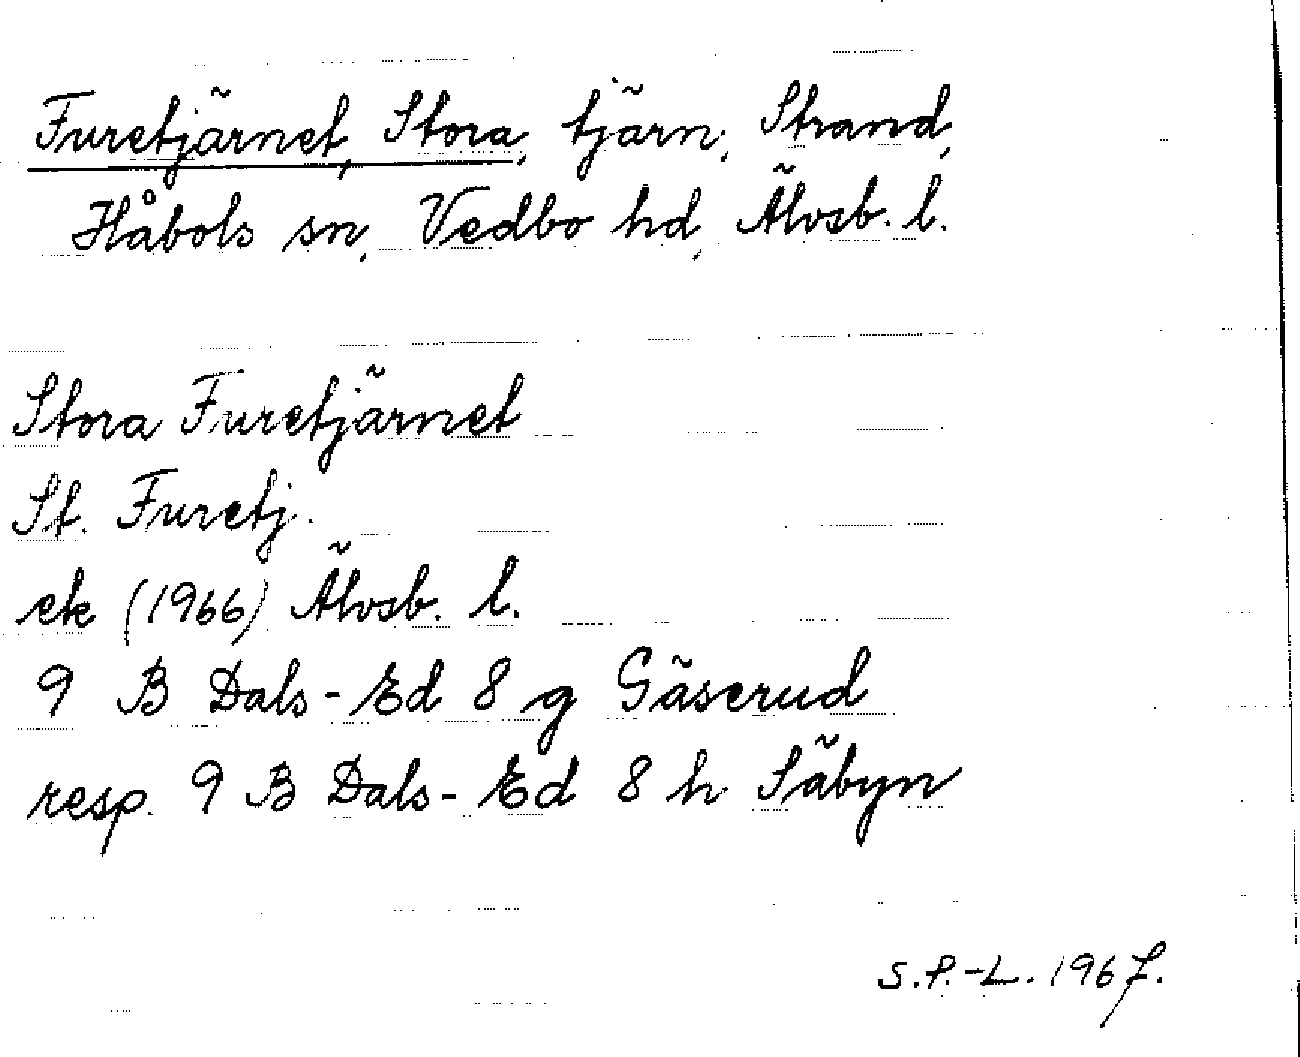 Furetjärnet, Stora, tjärn, Strand,
Håbols sn, Vedbo hd, Älvsb. l.
Stora Furetjärnet
St. Furetj.
ek (1966) Älvsb. l.
9 B Dals-Ed 8 g Gäserud
resp. 9 B Dals-Ed 8 h Säbyn
S.P.-L. 1967.